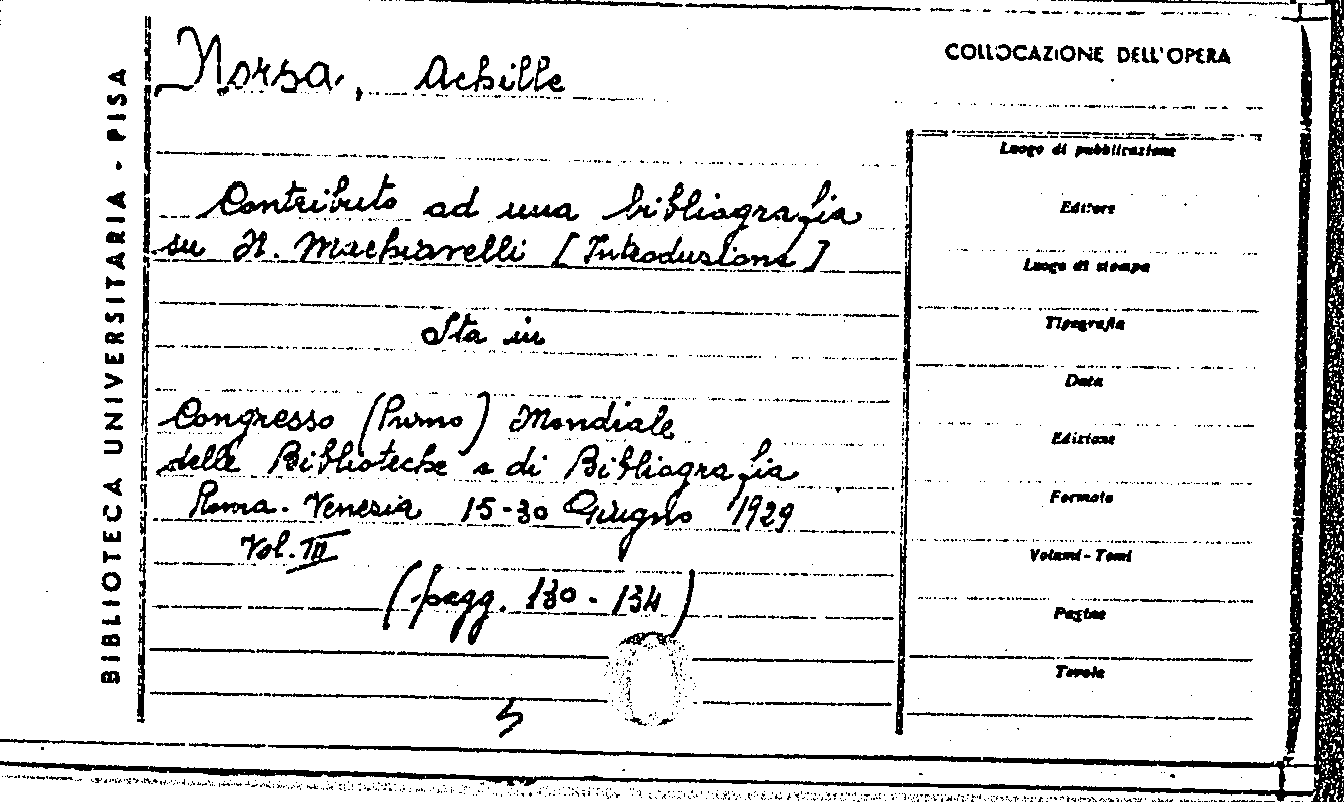 BIBLIOTECA UNIVERSITARIA - PISA
Norsa, Achille
Contributo ad una bibliografia
su N. Machiavelli [Introduzione]
Sta in
Congresso (Primo) Mondiale
delle Biblioteche e di Bibliografia
Roma - Venezia 15-30 Giugno 1929
Vol. III
(pagg. 130 - 134)
5
COLLOCAZIONE DELL'OPERA
Luogo di pubblicazione
Editore
Luogo di stampa
Tipografia
Data
Edizione
Formato
Volumi - Tomi
Pagine
Tavole